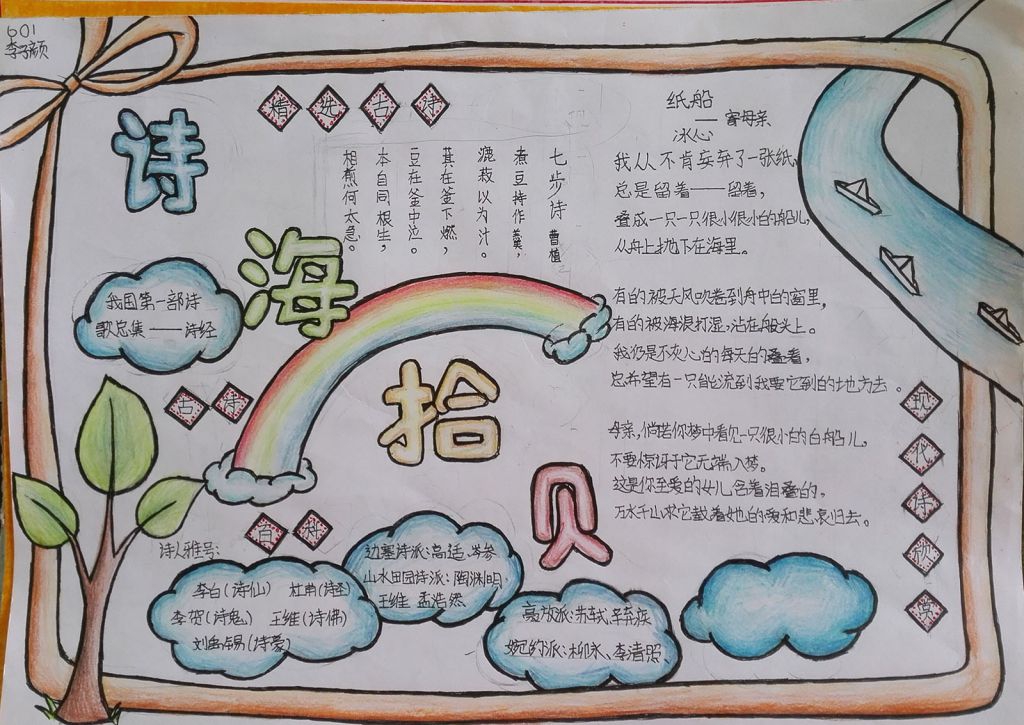 601
李子颜
诗
海
拾
贝
精选古诗
七步诗 曹植
煮豆持作羹，
漉菽以为汁。
萁在釜下燃，
豆在釜中泣。
本自同根生，
相煎何太急。
纸船
——寄母亲
冰心
我从不肯妄弃了一张纸，
总是留着——留着，
叠成一只一只很小很小的船儿，
从舟上抛下在海里。
有的被天风吹卷到舟中的窗里，
有的被海浪打湿，沾在船头上。
我仍是不灰心的每天的叠着，
总希望有一只能流到我要它到的地方去。
母亲，倘若你梦中看见一只很小的白船儿，
不要惊讶于它无端入梦。
这是你至爱的女儿含着泪叠的，
万水千山求它载着她的爱和悲哀归去。
现代诗欣赏
我国第一部诗
歌总集——诗经
古诗
百科
诗人雅号：
李白（诗仙） 杜甫（诗圣）
李贺（诗鬼） 王维（诗佛）
刘禹锡（诗豪）
边塞诗派：高适、岑参
山水田园诗派：陶渊明、
王维 孟浩然
豪放派：苏轼、辛弃疾
婉约派：柳永、李清照